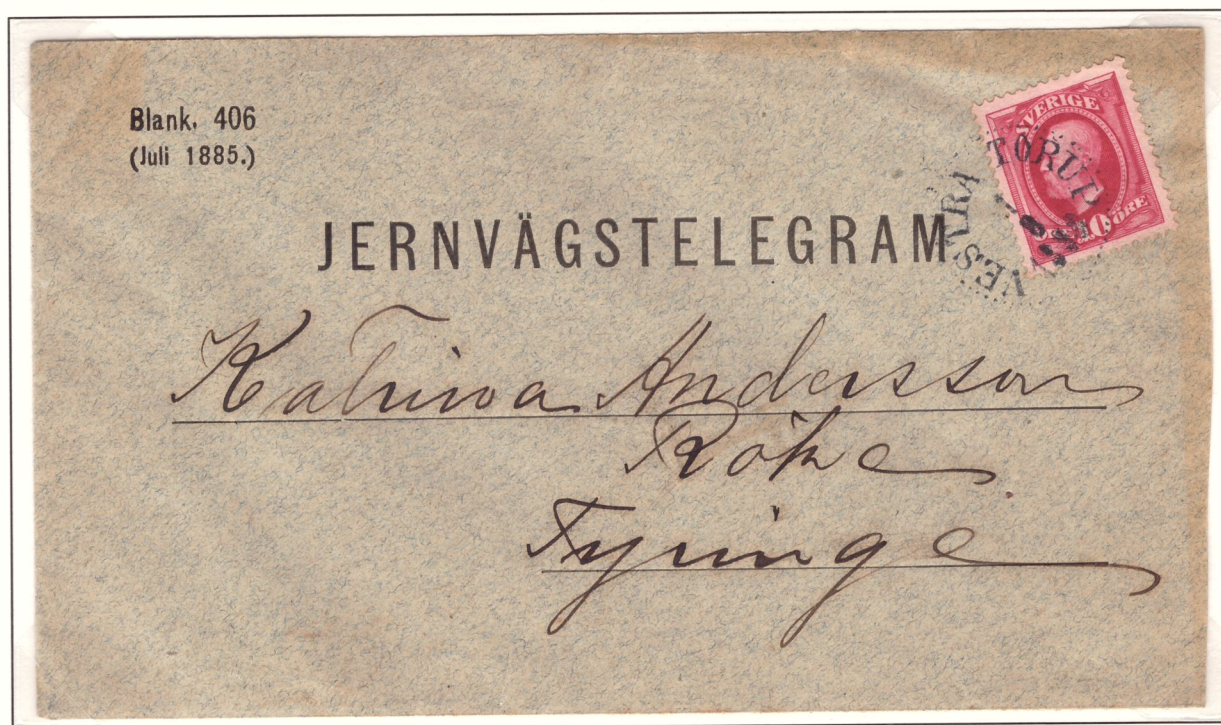 Blank. 406
(Juli 1885.)
SVERIGE
10 ÖRE
VESTRA TORUP
JERNVÄGSTELEGRAM
Katrina Andersson
Röke
Tyringe